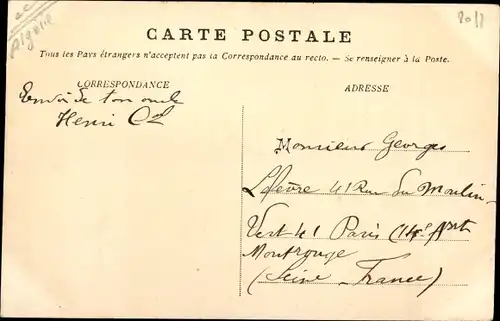 Algérie
20 11
CARTE POSTALE
Tous les Pays étrangers n'acceptent pas la Correspondance au recto. — Se renseigner à la Poste.
CORRESPONDANCE
ADRESSE
Envoi de ton oncle
Henri
Monsieur Georges
Lefèvre 41 Rue du Moulin-
Vert 41 Paris (14e Art
Montrouge
(Seine, France)